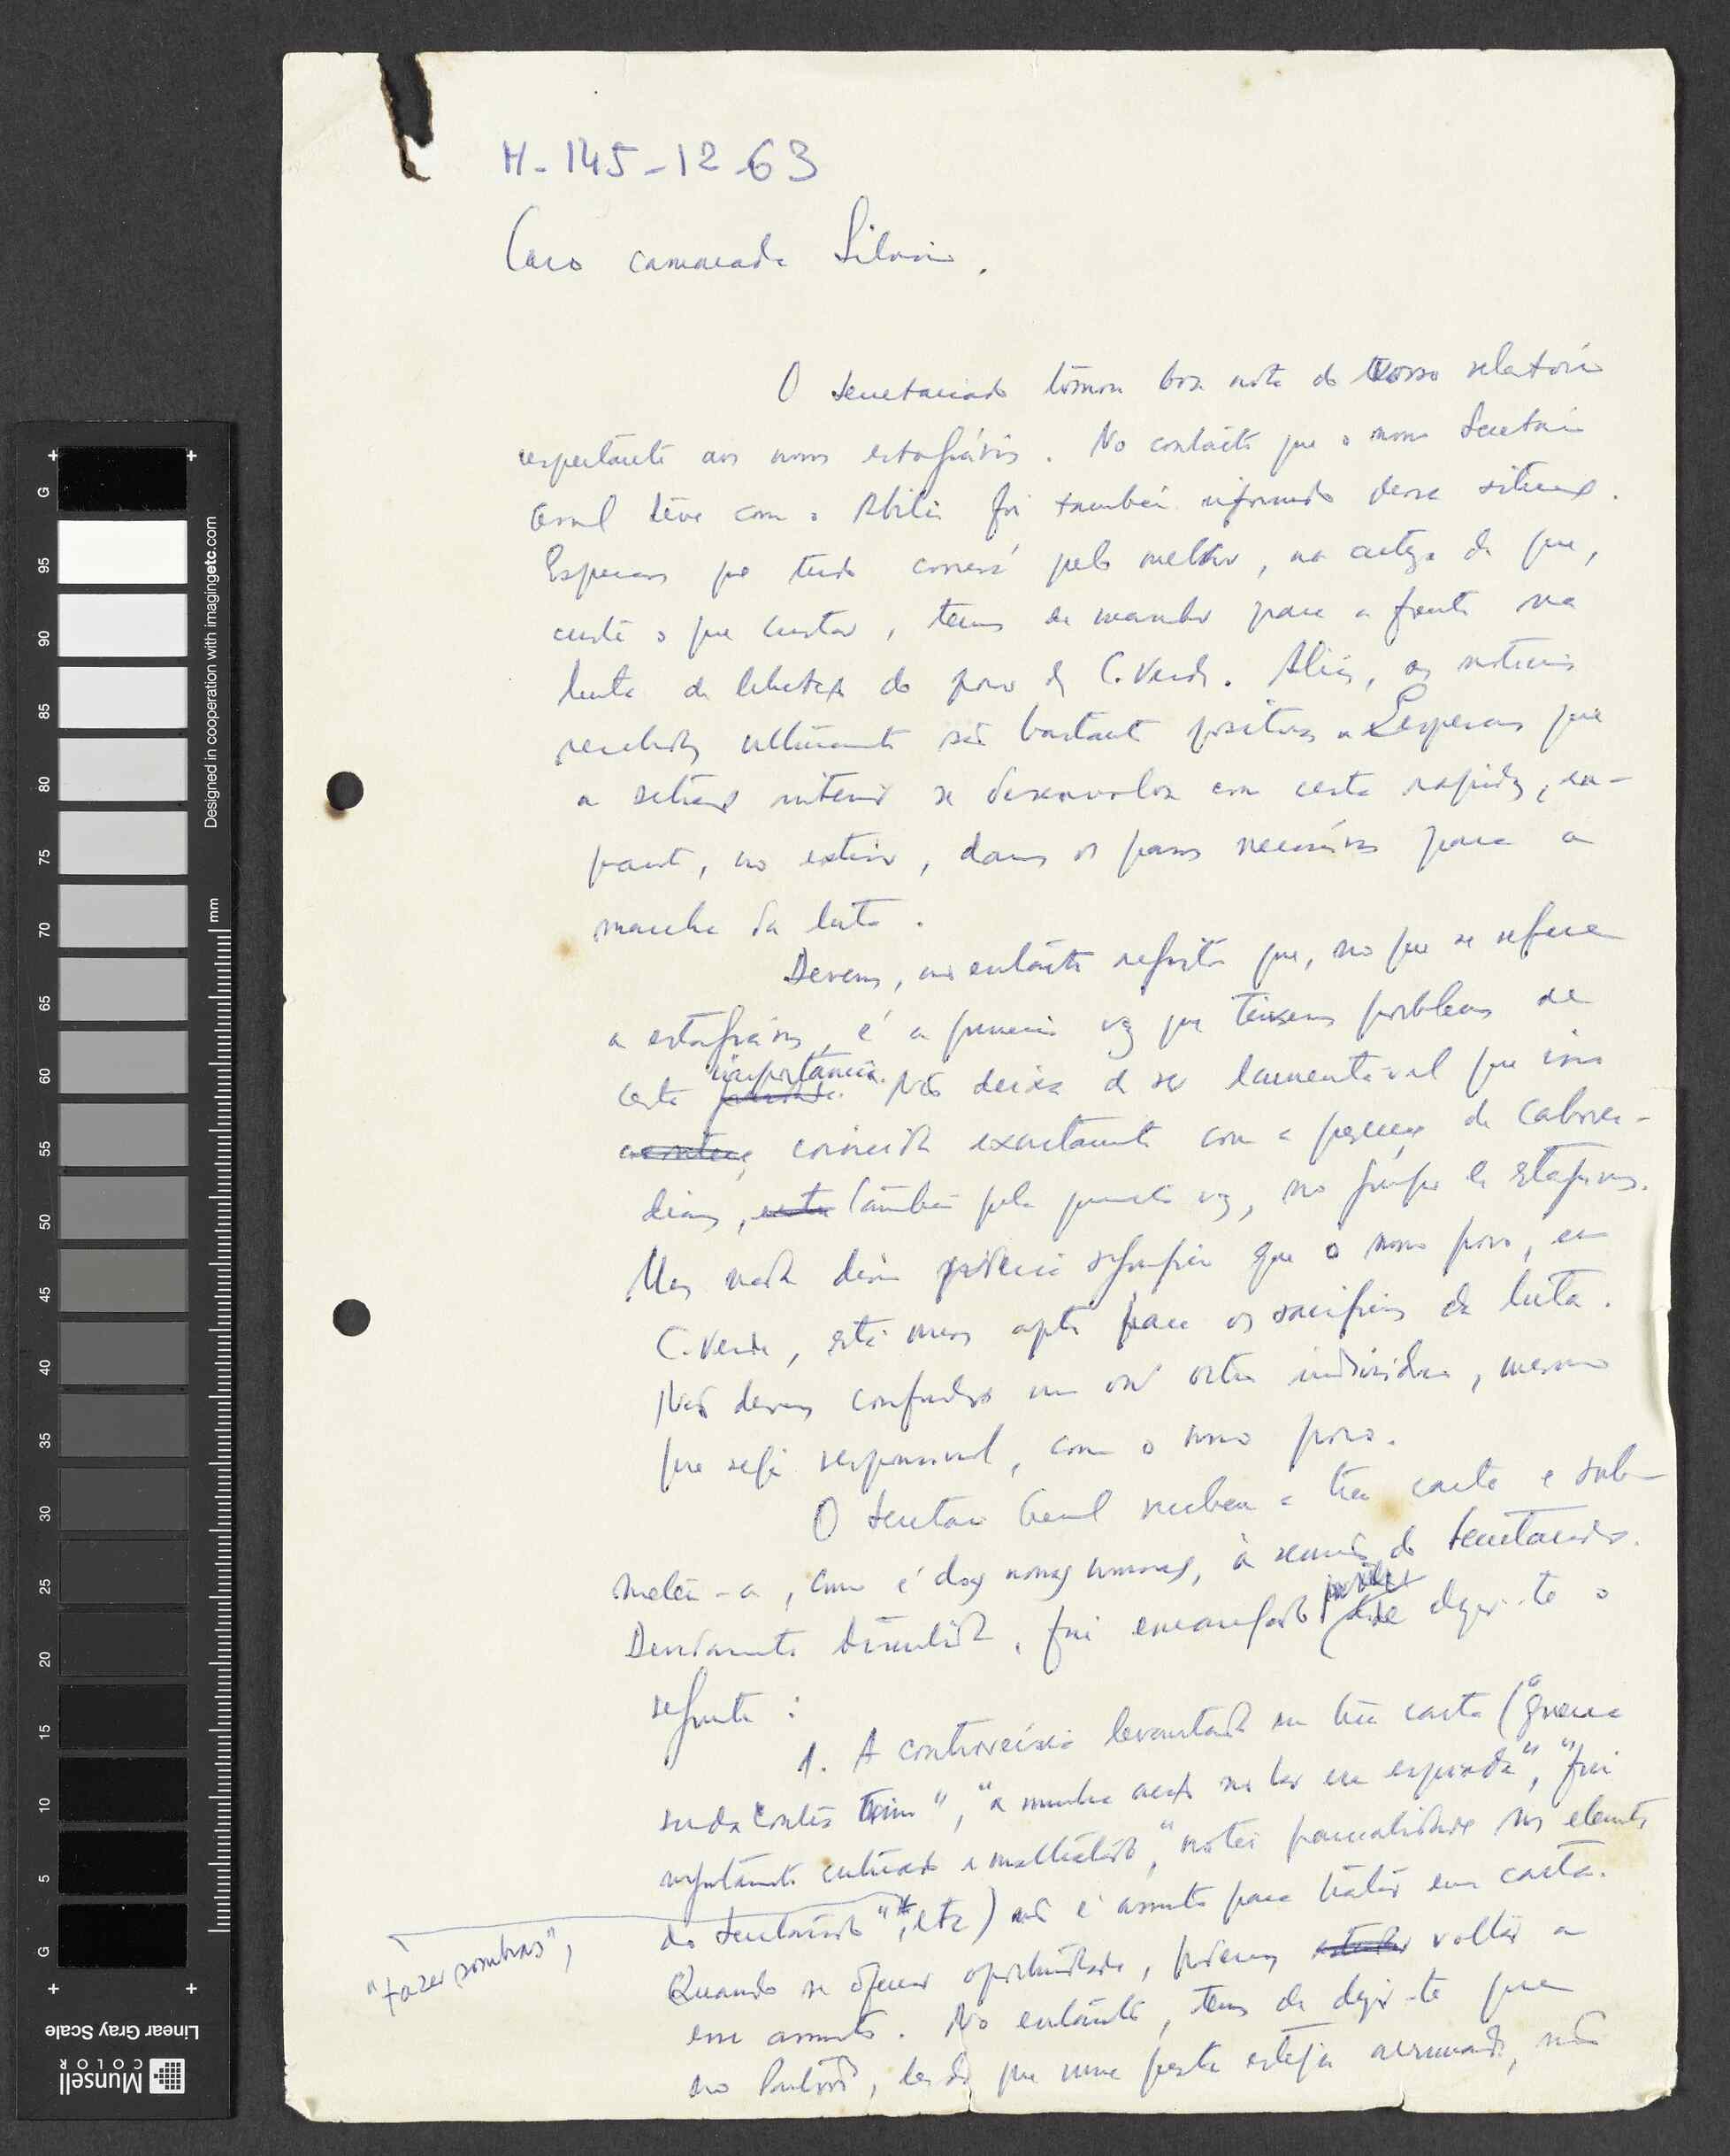 H-145-12-63
Caro camarada Silvino.
O Secretariado tomou boa nota do vosso relatório
respeitante aos novos estagiários. No contacto que o nosso Secretário
Geral teve com o Abílio foi também informado dessa situação.
Esperamos que tudo correrá pelo melhor, na certeza de que,
custe o que custar, temos de marchar para a frente na
luta de libertação do povo de C. Verde. Aliás, as notícias
recebidas ultimamente são bastante positivas e esperamos que
a situação interior se desenvolva com certa rapidez, en-
quanto, no exterior, damos os passos necessários para a
marcha da luta.
Devemos, no entanto registar que, no que se refere
a estagiários, é a primeira vez que temos problemas de
certa importância. Não deixa de ser lamentável que isso
coincida exactamente com a presença de cabover-
deanos, também pela primeira vez, no grupo de estagiários.
Mas nada disso poderia significar que o nosso povo, em
C. Verde, está menos apto para os sacrifícios da luta.
Não devemos confundir um ou outro indivíduo, mesmo
que seja responsável, com o nosso povo.
O Secretário Geral recebeu a tua carta e sub-
meteu-a, como é das nossas normas, à reunião do Secretariado.
Devidamente discutida, fui encarregado de dizer-te o
seguinte:
1. A controvérsia levantada na tua carta ("guerra
surda contra mim", "a minha acção no lar era esperada", "fui
injustamente criticado e maltratado", "notei parcialidade nos elementos
do Secretariado", etc) não é assunto para tratar em carta.
"fazer sombras",
Quando se oferecer oportunidade, podemos voltar a
esse assunto. No entanto, temos de dizer-te que
no Partido, desde que uma pessoa esteja, não